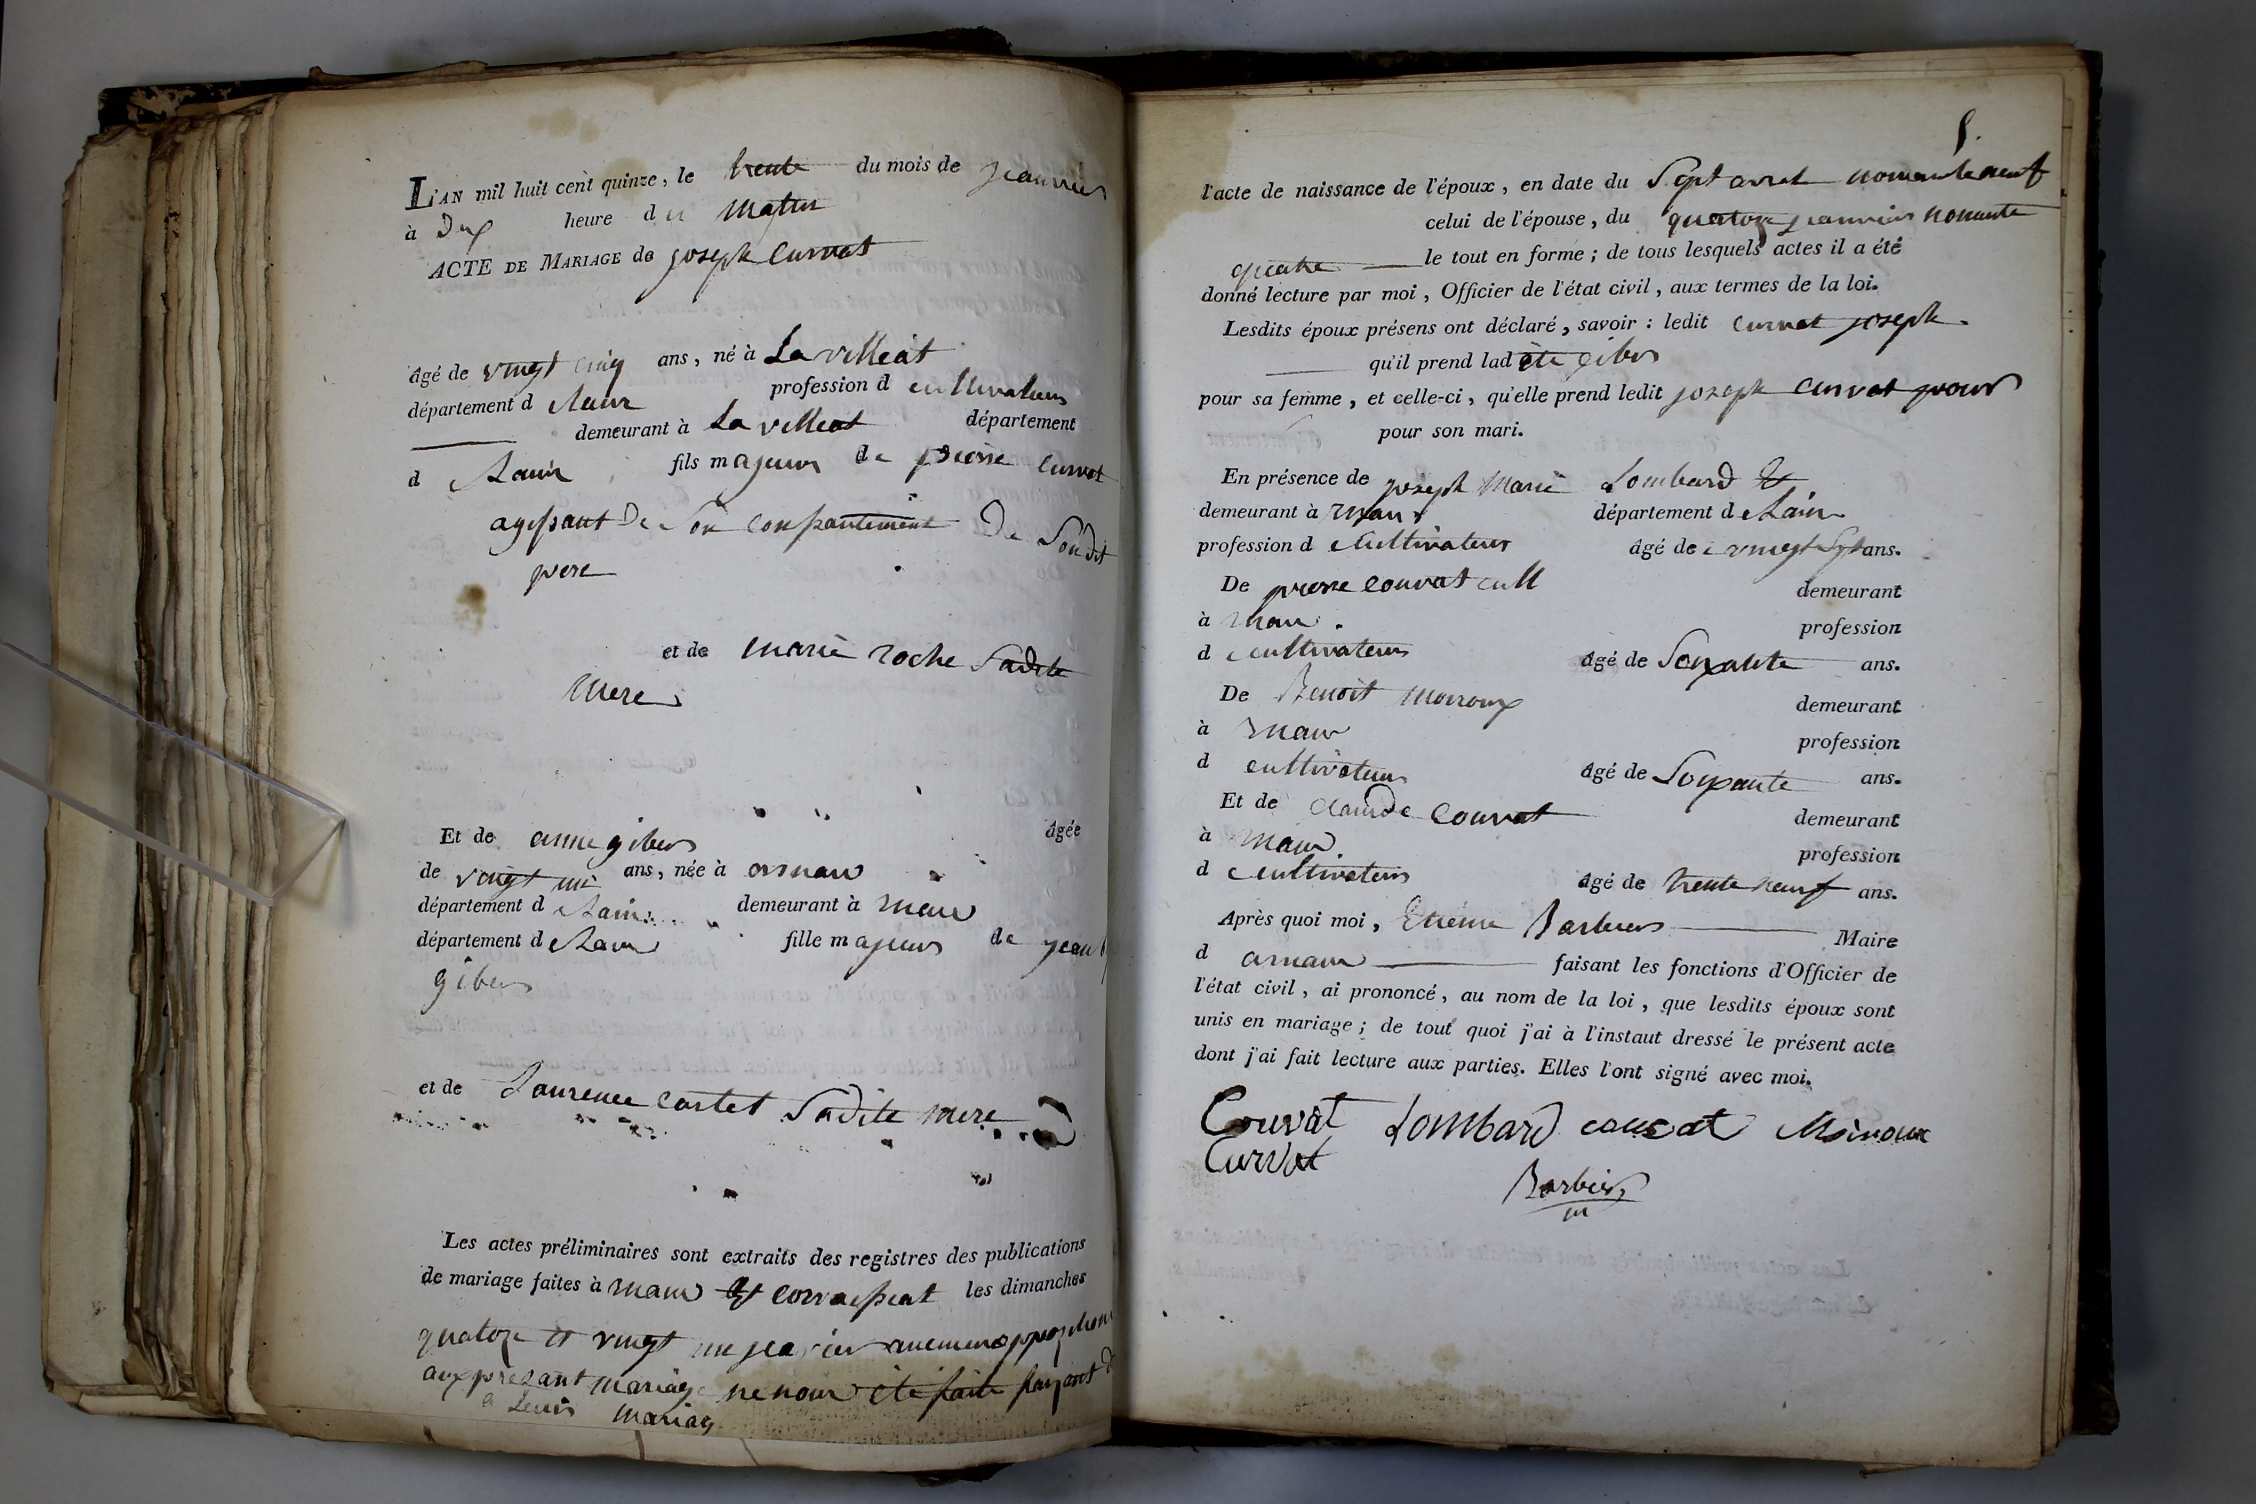 L'AN mil huit cent quinze, le trente du mois de jeanvier
à Dix heure du Matin
ACTE DE MARIAGE de joseph Curvat
âgé de vingt cinq ans, né à La villeat
département d Lain profession d cultivateur
demeurant à La villeat département
d Lain fils majeur de pierre Curvat
agissant De Son consantement De Son dit
pere
et de marie roche Sadite
mere
Et de anne giber âgée
de vingt un ans, née à
département d Lain demeurant à
département d Lain fille majeur de jean
giber
et de Laurence cartet Sadite mere
Les actes préliminaires sont extraits des registres des publications
de mariage faites à et les dimanches
quatorze et vingt un
aux présant mariage ne nour été faite
a Leur mariag
5.
l'acte de naissance de l'époux, en date du Sept nonante neuf
celui de l'épouse, du quatorze jeanvier nonante
quatre le tout en forme; de tous lesquels actes il a été
donné lecture par moi, Officier de l'état civil, aux termes de la loi.
Lesdits époux présens ont déclaré, savoir: ledit curvat joseph
qu'il prend lad ite giber
pour sa femme, et celle-ci, qu'elle prend ledit joseph curvat pour
pour son mari.
En présence de joseph Marie Lombard
demeurant à département d Lain
profession d Cultivateur âgé de vingt Sept ans.
De pierre couvat cult demeurant
à profession
d cultivateur âgé de Soixante ans.
De Benoit moiroux demeurant
à profession
d cultivateur âgé de Soixante ans.
Et de claude couvat demeurant
à profession
d cultivateur âgé de trente neuf ans.
Après quoi moi, Etienne Barbier Maire
d arnans faisant les fonctions d'Officier de
l'état civil, ai prononcé, au nom de la loi, que lesdits époux sont
unis en mariage; de tout quoi j'ai à l'instaut dressé le présent acte
dont j'ai fait lecture aux parties. Elles l'ont signé avec moi.
Couvat Lombard couvat Moiroux
Curvat
Barbier
m